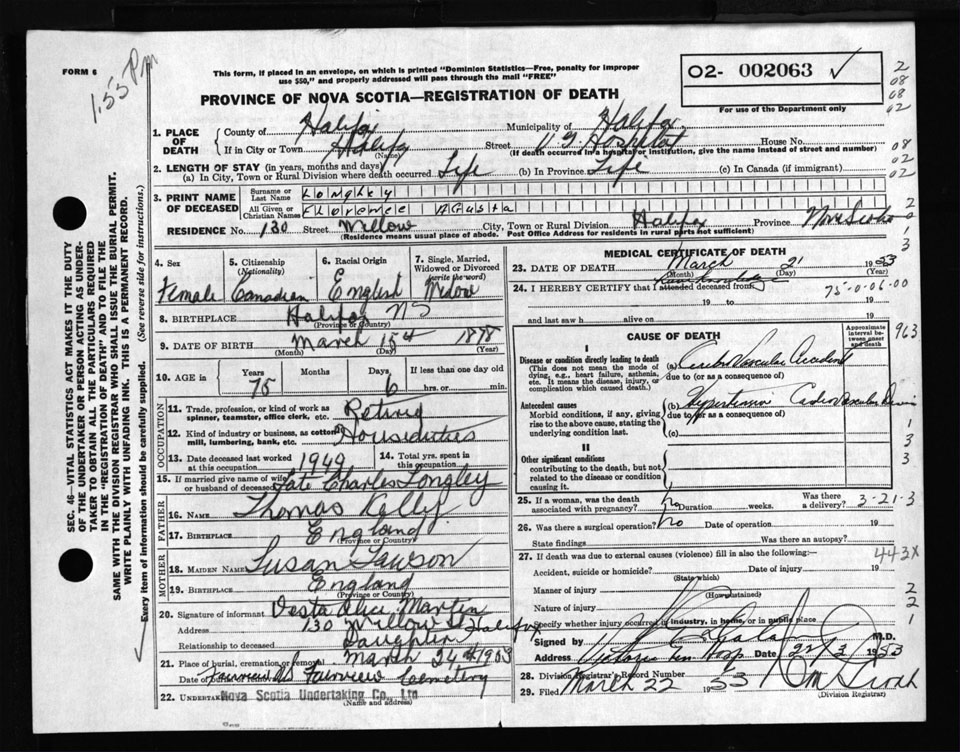 FORM 6
1.55 Pm
This form, if placed in an envelope, on which is printed "Dominion Statistics—Free, penalty for improper
use $50," and properly addressed will pass through the mail "FREE"
PROVINCE OF NOVA SCOTIA—REGISTRATION OF DEATH
02- 002063 ✓
For use of the Department only
2
08
08
02
1. PLACE OF DEATH
County of Halifax Municipality of Halifax
If in City or Town Halifax (Name) Street V G Hospital House No.
(If death occurred in a hospital or institution, give the name instead of street and number)
08
2. LENGTH OF STAY (in years, months and days)
(a) In City, Town or Rural Division where death occurred Life (b) In Province Life (c) In Canada (if immigrant)
02
02
3. PRINT NAME OF DECEASED
Surname or Last Name Longley
All Given or Christian Names Florence Agusta
2
RESIDENCE No. 130 Street Willow City, Town or Rural Division Halifax Province Nova Scotia
(Residence means usual place of abode. Post Office Address for residents in rural parts not sufficient)
1
3
SEC. 46—VITAL STATISTICS ACT MAKES IT THE DUTY
OF THE UNDERTAKER OR PERSON ACTING AS UNDER-
TAKER TO OBTAIN ALL THE PARTICULARS REQUIRED
IN THE "REGISTRATION OF DEATH" AND TO FILE THE
SAME WITH THE DIVISION REGISTRAR WHO SHALL ISSUE THE BURIAL PERMIT.
WRITE PLAINLY WITH UNFADING INK. THIS IS A PERMANENT RECORD.
Every item of information should be carefully supplied. (See reverse side for instructions.)
4. Sex Female
5. Citizenship (Nationality) Canadian
6. Racial Origin English
7. Single, Married, Widowed or Divorced (write the word) Widow
8. BIRTHPLACE Halifax NS
(Province or Country)
9. DATE OF BIRTH March 15th 1878
(Month) (Day) (Year)
10. AGE in Years 75 Months Days 6 If less than one day old hrs. or min.
OCCUPATION
11. Trade, profession, or kind of work as spinner, teamster, office clerk, etc. Retired
12. Kind of industry or business, as cotton mill, lumbering, bank, etc. Houseduties
13. Date deceased last worked at this occupation 1949
14. Total yrs. spent in this occupation
15. If married give name of wife or husband of deceased Late Charles Longley
FATHER
16. NAME Thomas Kelly
17. BIRTHPLACE England
(Province or Country)
MOTHER
18. MAIDEN NAME Susan Lawson
19. BIRTHPLACE England
(Province or Country)
20. Signature of informant Vesta Alice Martin
Address 130 Willow St Halifax
Relationship to deceased Daughter
21. Place of burial, cremation or removal
Date of burial March 24th 1953
Fairview Cemetery
22. UNDERTAKER Nova Scotia Undertaking Co., Ltd
(Name and address)
MEDICAL CERTIFICATE OF DEATH
23. DATE OF DEATH March 21 1953
(Month) (Day) (Year)
24. I HEREBY CERTIFY that I attended deceased from
75-0-06-00
19 to 19
and last saw h alive on 19
CAUSE OF DEATH
Approximate interval between onset and death
963
I
Disease or condition directly leading to death
(This does not mean the mode of dying, e.g., heart failure, asthenia, etc. It means the disease, injury, or complication which caused death.)
(a) Cerebro Vascular Accident
due to (or as a consequence of)
Antecedent causes
Morbid conditions, if any, giving rise to the above cause, stating the underlying condition last.
(b) Hypertensive Cardio Vascular Disease
due to (or as a consequence of)
(c)
1
3
3
II
Other significant conditions
contributing to the death, but not related to the disease or condition causing it.
25. If a woman, was the death associated with pregnancy? no Duration weeks. Was there a delivery? 3-21-3
26. Was there a surgical operation? no Date of operation 19
State findings Was there an autopsy?
27. If death was due to external causes (violence) fill in also the following:—
443X
Accident, suicide or homicide? Date of injury 19
(State which)
Manner of injury
(How sustained)
2
Nature of injury
2
Specify whether injury occurred in industry, in home, or in public place
1
Signed by M.D.
Address Victoria Gen Hosp Date 22/3 1953
28. Division Registrar's Record Number
29. Filed March 22 1953
(Division Registrar)